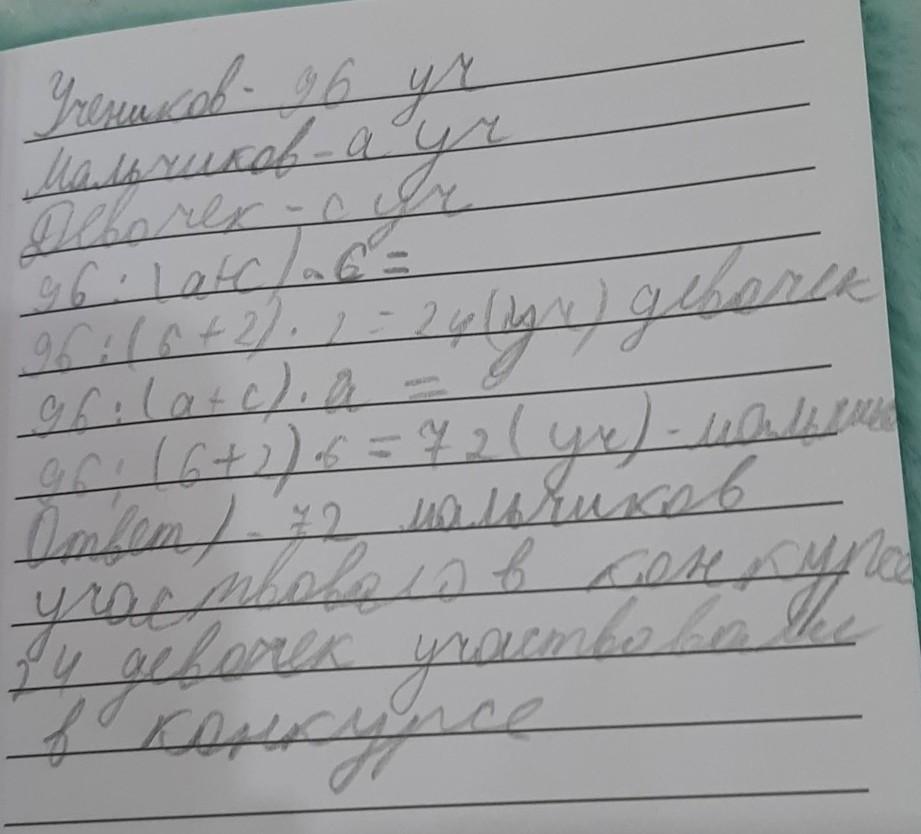 Учеников - 96 уч
Мальчиков - а уч
Девочек - с уч
96 : (а+с) . 6 =
96 : (6+2) . 2 = 24 (уч) девочек
96 : (а+с) . а =
96 : (6+2) . 6 = 72 (уч) - мальчик
Ответ) - 72 мальчиков
участвовало в конкурсе
24 девочек участвовали
в конкурсе